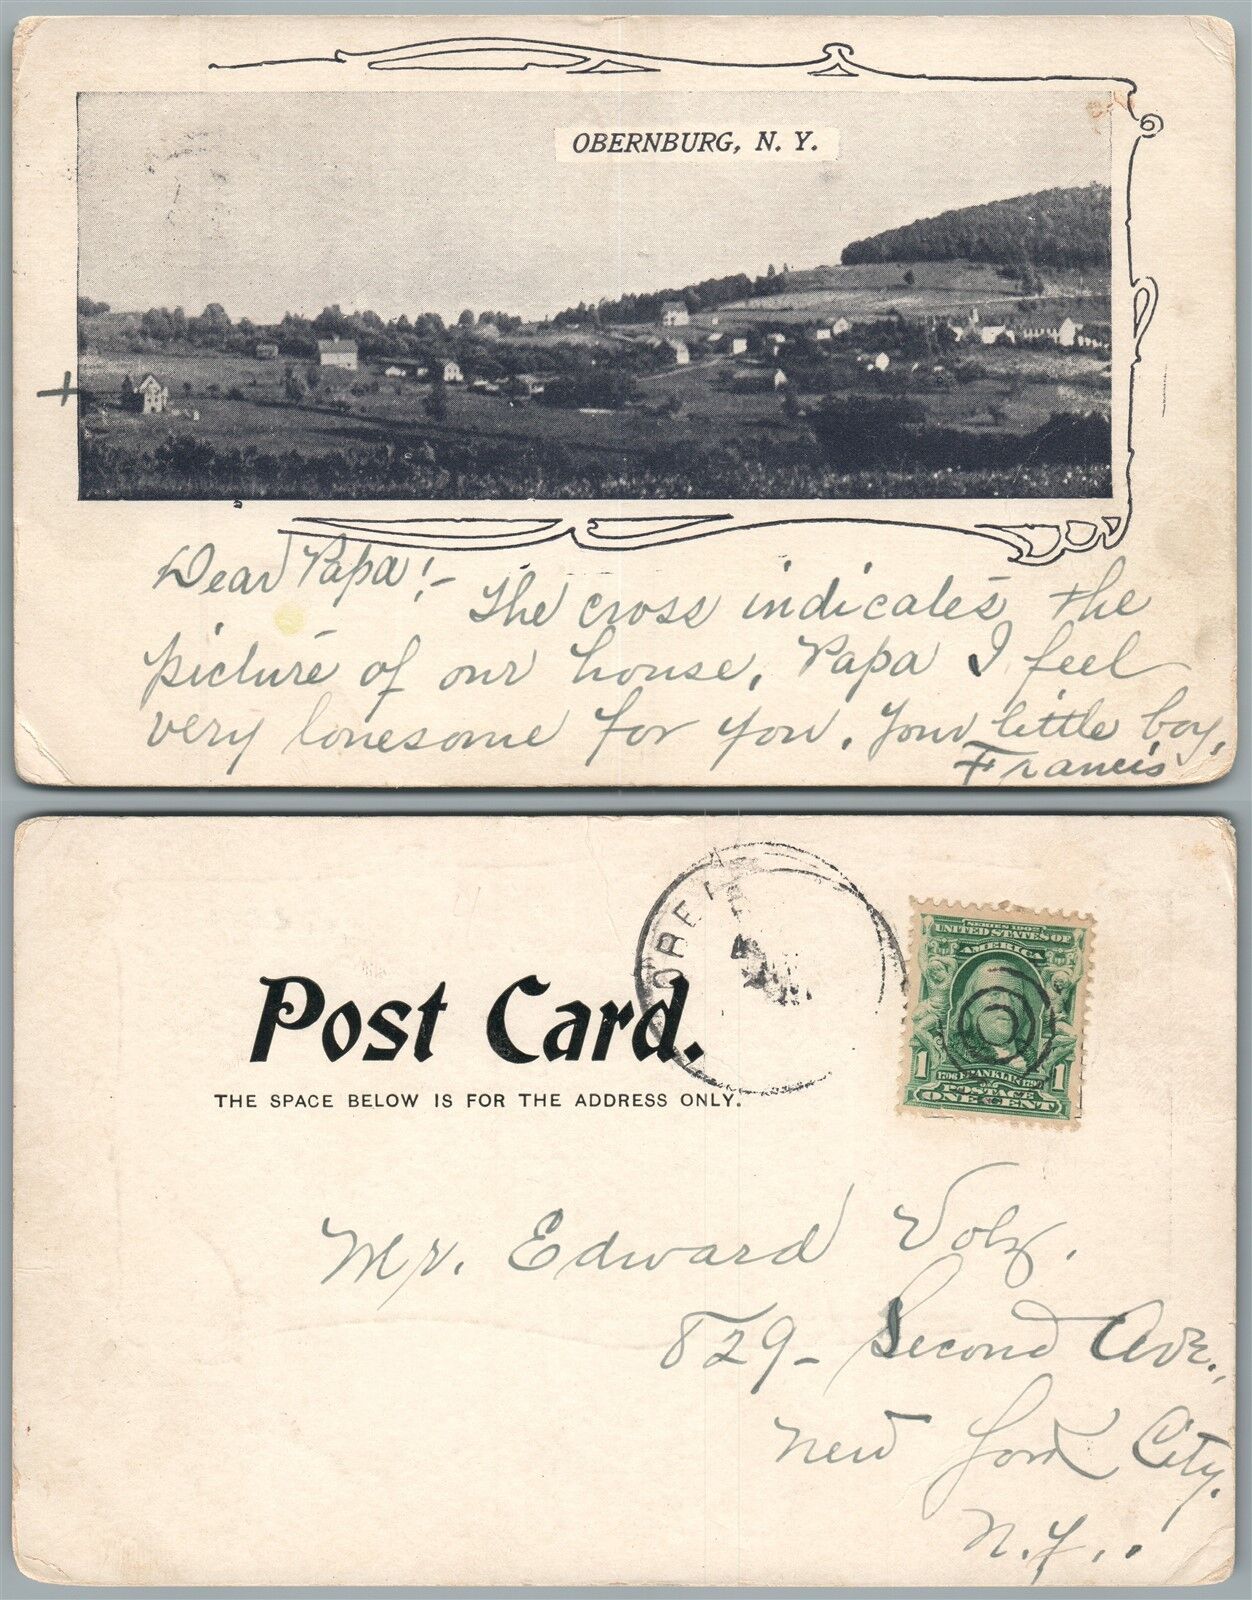 OBERNBURG, N. Y.
+
Dear Papa! - The cross indicates the
picture of our house, Papa I feel
very lonesome for you. Your little boy,
Francis
Post Card.
THE SPACE BELOW IS FOR THE ADDRESS ONLY.
SERIES 1902
UNITED STATES OF
AMERICA
1706 FRANKLIN 1790
1 1
POSTAGE
ONE CENT
Mr. Edward Volz.
829 - Second Ave.,
New York City.
N.Y..